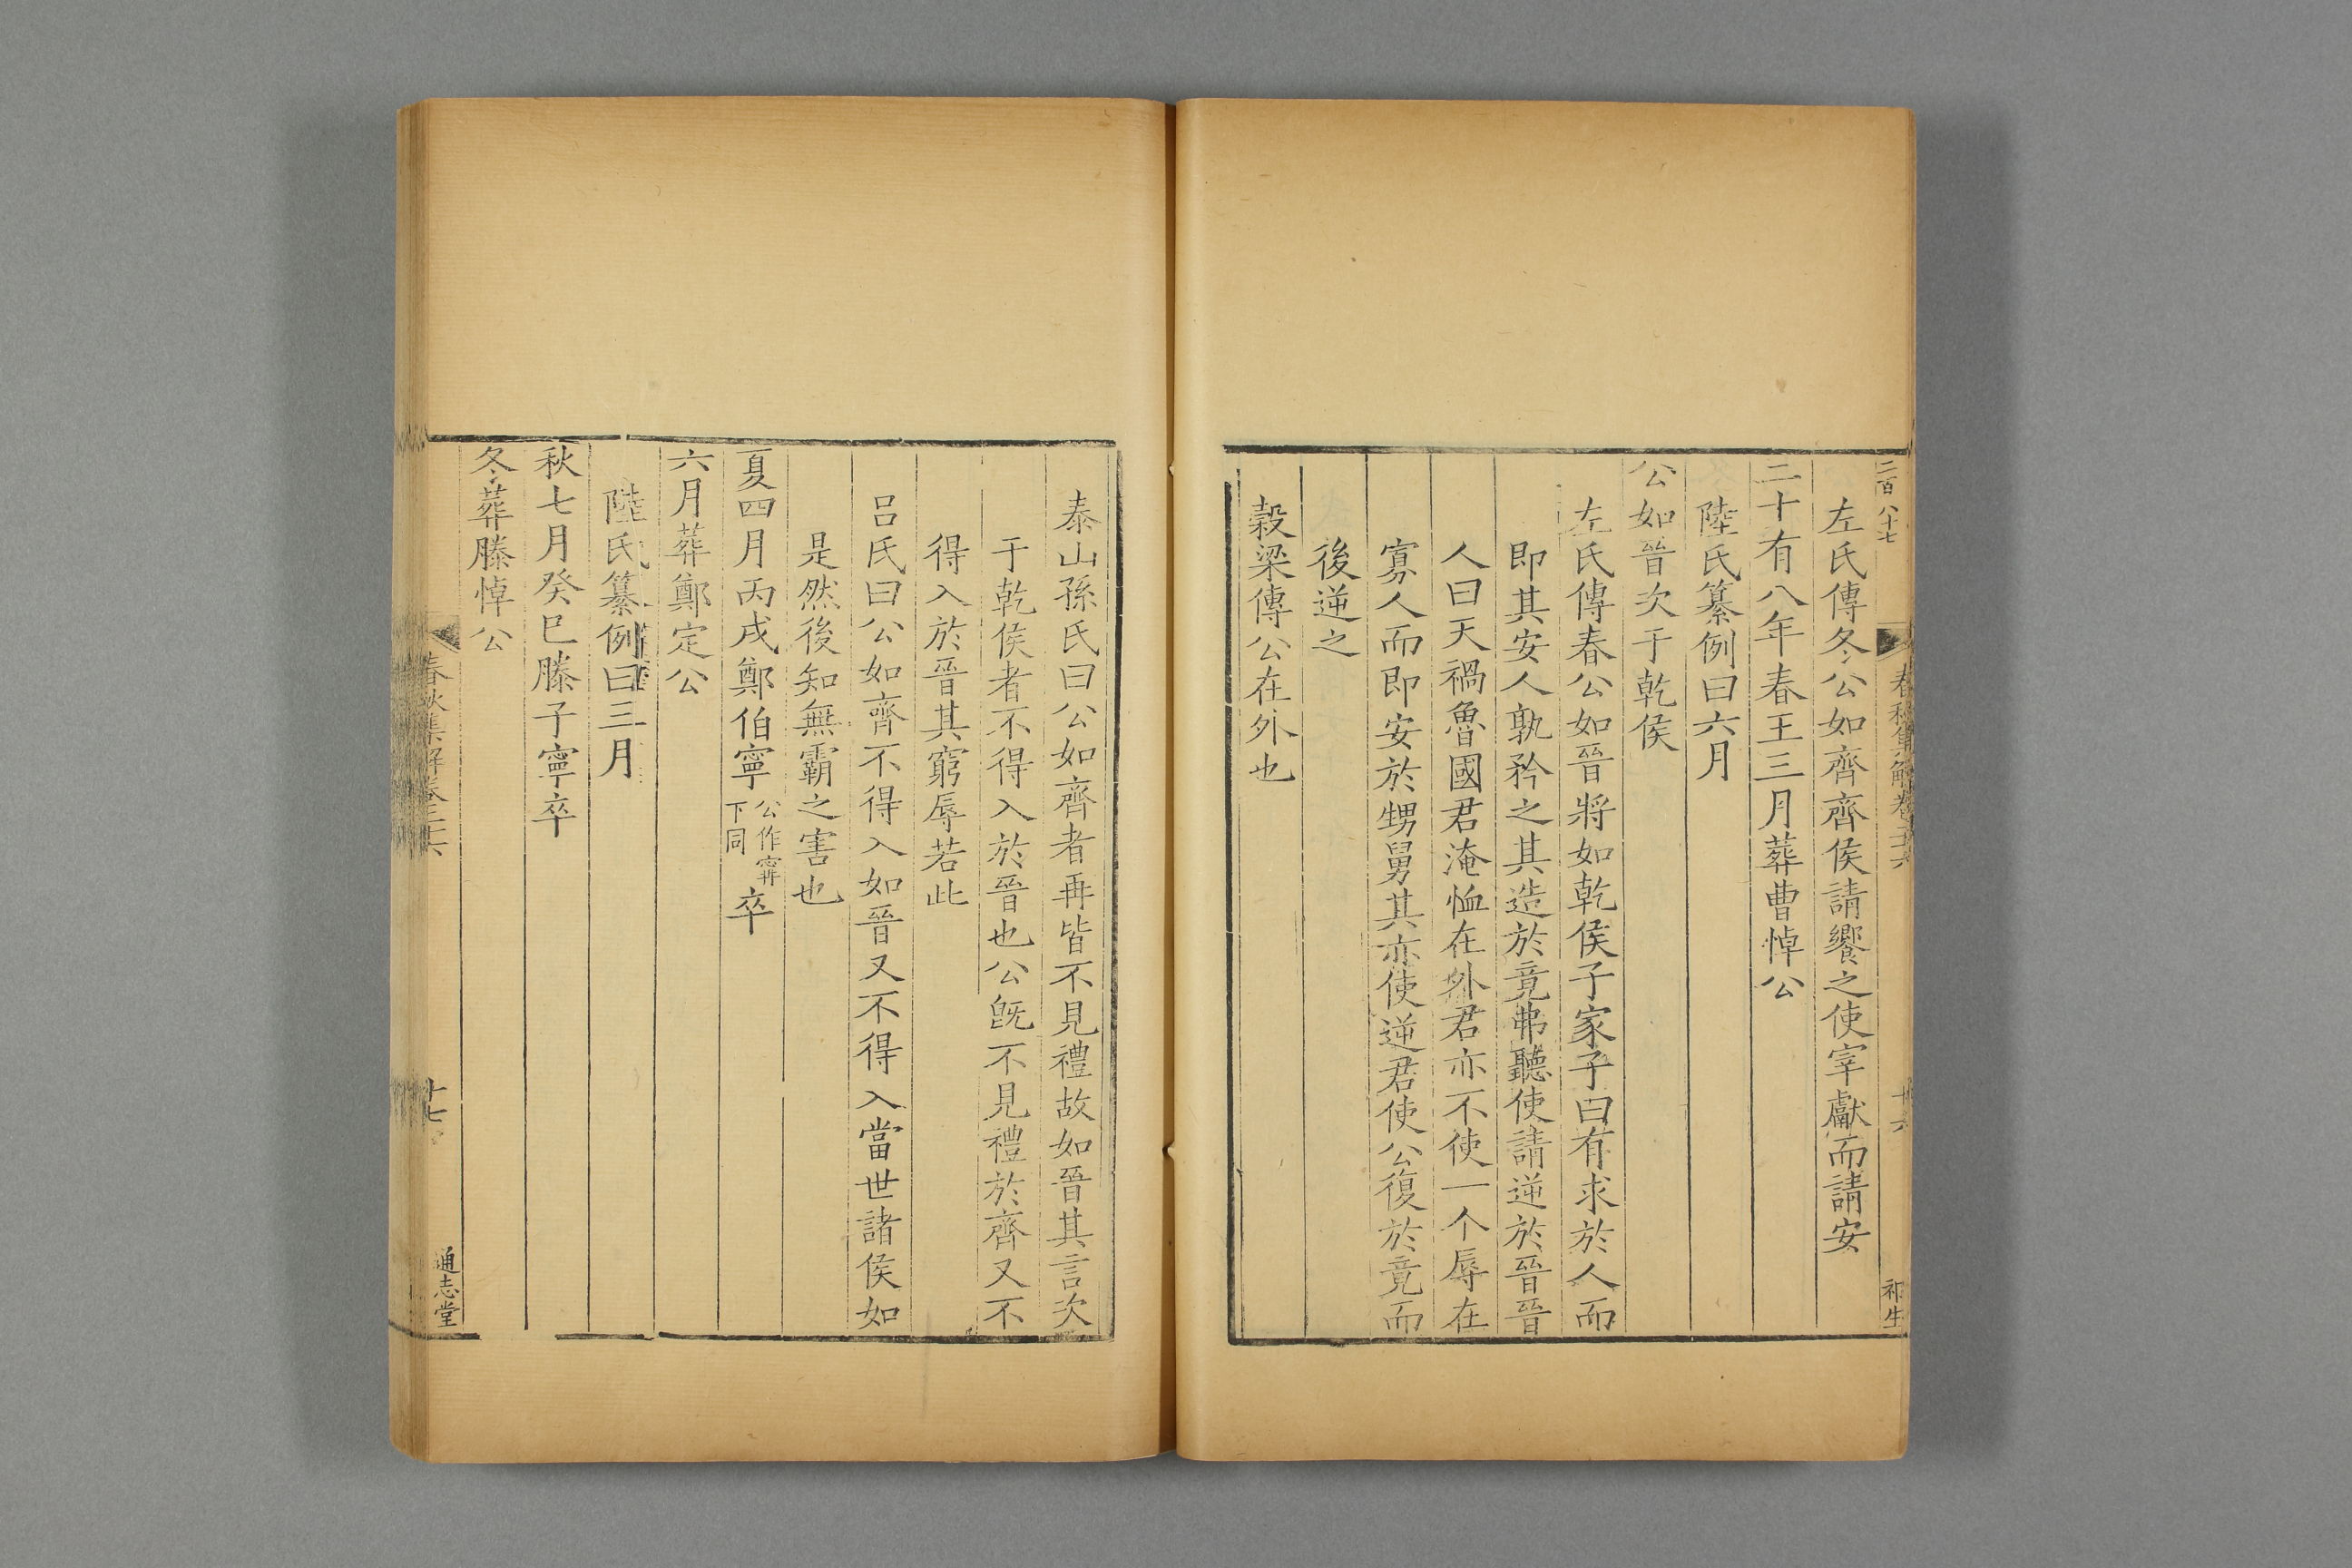 二百八十七
春秋集解卷二十六
十六
祁生
左氏傳冬公如齊齊侯請饗之使宰獻而請安
二十有八年春王三月葬曹悼公
陸氏纂例曰六月
公如晉次于乾侯
左氏傳春公如晉將如乾侯子家子曰有求於人而
即其安人孰矜之其造於竟弗聽使請逆於晉晉
人曰天禍魯國君淹恤在外君亦不使一个辱在
寡人而即安於甥舅其亦使逆君使公復於竟而
後逆之
穀梁傳公在外也
泰山孫氏曰公如齊者再皆不見禮故如晉其言次
于乾侯者不得入於晉也公旣不見禮於齊又不
得入於晉其窮辱若此
吕氏曰公如齊不得入如晉又不得入當世諸侯如
是然後知無霸之害也
夏四月丙戌鄭伯寧公作甯下同卒
六月葬鄭定公
陸氏纂例曰三月
秋七月癸巳滕子寧卒
冬葬滕悼公
春秋集解卷二十六
十七
通志堂